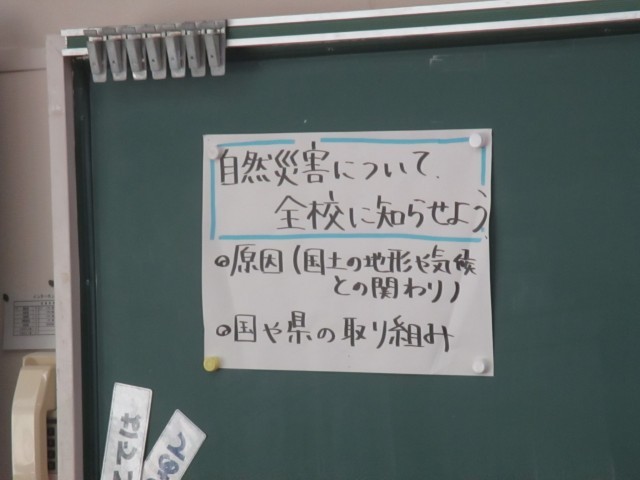 自然災害について、
全校に知らせよう
原因(国土の地形や気候
との関わり)
国や県の取り組み